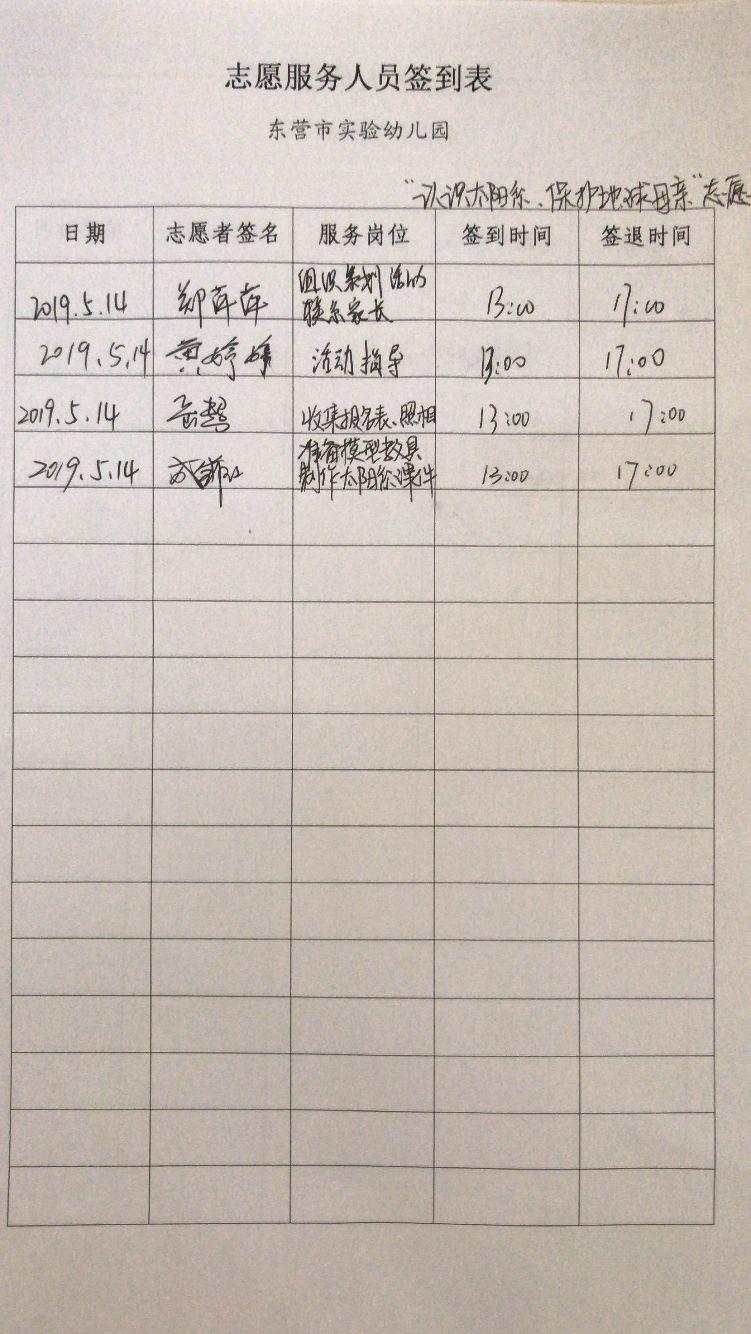 志愿服务人员签到表
东营市实验幼儿园
“认识太阳系、保护地球母亲”志愿
日期 志愿者签名 服务岗位 签到时间 签退时间
组织策划活动
2019.5.14 郑萍萍 联系家长 13:00 17:00
2019.5.14 黄婷婷 活动指导 13:00 17:00
2019.5.14 收集报名表、照相 13:00 17:00
准备模型教具
2019.5.14 制作太阳系课件 13:00 17:00